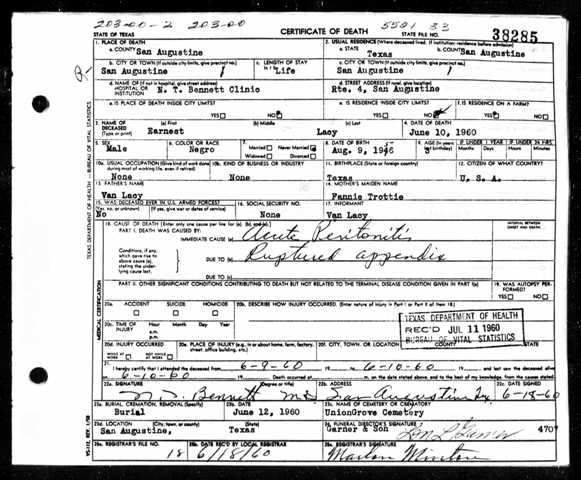 203-00-2 203-00 5501 33
STATE OF TEXAS CERTIFICATE OF DEATH STATE FILE NO. 38285
1. PLACE OF DEATH 2. USUAL RESIDENCE (Where deceased lived. If institution: residence before admission)
a. COUNTY San Augustine a. STATE Texas b. COUNTY San Augustine
b. CITY OR TOWN (If outside city limits, give precinct no.) c. LENGTH OF STAY c. CITY OR TOWN (If outside city limits, give precinct no.)
San Augustine 1 Life San Augustine 1
d. NAME OF (If not in hospital, give street address) HOSPITAL OR INSTITUTION N. T. Bennett Clinic d. STREET ADDRESS (If rural, give location) Rte. 4, San Augustine
e. IS PLACE OF DEATH INSIDE CITY LIMITS? e. IS RESIDENCE INSIDE CITY LIMITS? f. IS RESIDENCE ON A FARM?
YES NO YES NO YES NO
3. NAME OF DECEASED (Type or print) (a) First (b) Middle (c) Last 4. DATE OF DEATH
Earnest Lacy June 10, 1960
5. SEX 6. COLOR OR RACE 7. Married Never Married 8. DATE OF BIRTH 9. AGE IF UNDER 1 YEAR IF UNDER 24 HRS.
Male Negro Widowed Divorced Aug. 9, 1946 Months Days Hours Min.
10a. USUAL OCCUPATION (Give kind of work done during most of working life, even if retired) 10b. KIND OF BUSINESS OR INDUSTRY 11. BIRTHPLACE (State or foreign country) 12. CITIZEN OF WHAT COUNTRY?
None None Texas U. S. A.
13. FATHER'S NAME 14. MOTHER'S MAIDEN NAME
Van Lacy Fannie Trottie
15. WAS DECEASED EVER IN U.S. ARMED FORCES? 16. SOCIAL SECURITY NO. 17. INFORMANT
(Yes, no, or unknown) (If yes, give war or dates of service)
No None Van Lacy
18. CAUSE OF DEATH [Enter only one cause per line for (a), (b), and (c).] INTERVAL BETWEEN ONSET AND DEATH
PART I. DEATH WAS CAUSED BY:
IMMEDIATE CAUSE (a) Acute Peritonitis
Conditions, if any, which gave rise to above cause (a), stating the underlying cause last. DUE TO (b) Ruptured appendix
DUE TO (c)
PART II. OTHER SIGNIFICANT CONDITIONS CONTRIBUTING TO DEATH BUT NOT RELATED TO THE TERMINAL DISEASE CONDITION GIVEN IN PART I(a) 19. WAS AUTOPSY PERFORMED?
YES NO
20a. ACCIDENT SUICIDE HOMICIDE 20b. DESCRIBE HOW INJURY OCCURRED. (Enter nature of injury in Part I or Part II of item 18.)
20c. TIME OF INJURY Hour Month Day Year
a.m.
p.m.
TEXAS DEPARTMENT OF HEALTH
REC'D JUL 11 1960
BUREAU OF VITAL STATISTICS
20d. INJURY OCCURRED 20e. PLACE OF INJURY (e.g., in or about home, farm, factory, street, office building, etc.) 20f. CITY, TOWN, OR LOCATION COUNTY STATE
WHILE AT WORK NOT WHILE AT WORK
21. 6-9-60 19 to 6-10-60 19 and last saw the deceased alive
6-10-60 19 Death occurred at m. on the date stated above, and to the best of my knowledge, from the causes stated.
22a. SIGNATURE (Degree or title) 22b. ADDRESS 22c. DATE SIGNED
N. T. Bennett MD San Augustine Tx 6-15-60
23a. BURIAL, CREMATION, REMOVAL (Specify) 23b. DATE 23c. NAME OF CEMETERY OR CREMATORY
Burial June 12, 1960 UnionGrove Cemetery
23d. LOCATION (City, town, or county) (State) 24. FUNERAL DIRECTOR'S SIGNATURE
San Augustine, Texas Garner & Son 4707
25a. REGISTRAR'S FILE NO. 25b. DATE REC'D BY LOCAL REGISTRAR 25c. REGISTRAR'S SIGNATURE
18 6/18/60 Marlon Minton
TEXAS DEPARTMENT OF HEALTH—BUREAU OF VITAL STATISTICS
MEDICAL CERTIFICATION